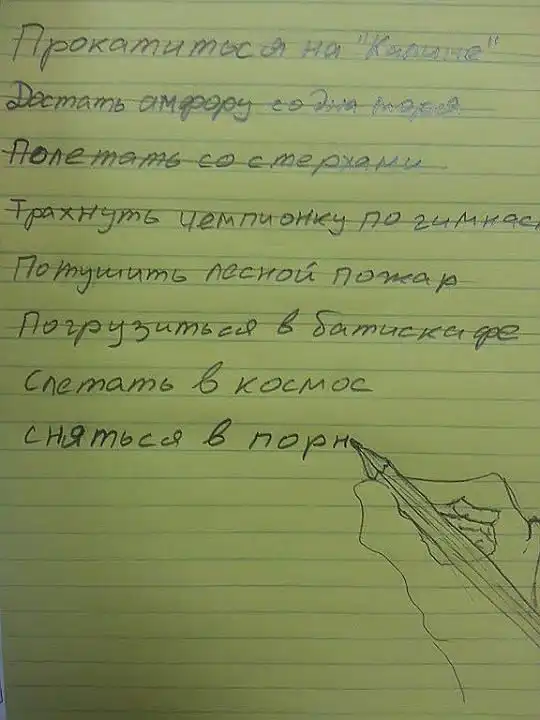 Прокатиться на "Калине"
Достать амфору со дна моря
Полетать со стерхами
Трахнуть чемпионку по гимнас
Потушить лесной пожар
Погрузиться в батискафе
Слетать в космос
сняться в порн